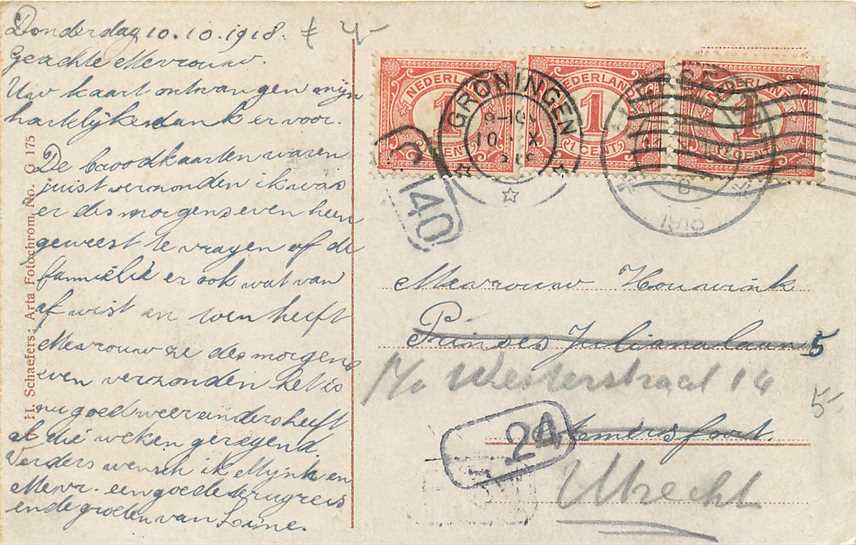 Donderdag 10.10.1918.
Geachte Mevrouw.
Uw kaart ontvangen mijn
hartlijke dank er voor.
De broodkaarten waren
juist verzonden ik was
er des morgens even heen
geweest te vragen of de
familie er ook wat van
af wist en toen heeft
Mevrouw ze des morgens
even verzonden het is
nu goed weer anders heeft
al die weken geregend
Verders wensch ik Mijnh en
Mevr. een goede terugreis
en de groeten van
H. Schaefers; Arta Fotochrom, No. G 175
NEDERLAND
1
CENT
NEDERLAND
1
1 CENT
NEDERLAND
1
CENT
GRONINGEN
10 X
140
Mevrouw Houwink
Prinses Julianalaan 5
p/a Westerstraat 14
5-
24
Amersfoort.
Utrecht